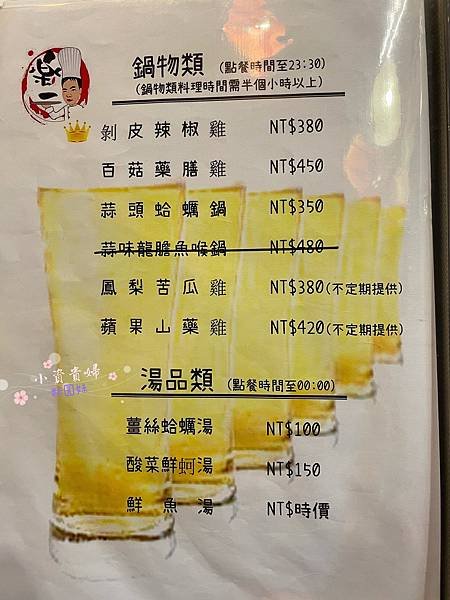 樂一
鍋物類 (點餐時間至23:30)
(鍋物類料理時間需半個小時以上)
剝皮辣椒雞 NT$380
百菇藥膳雞 NT$450
蒜頭蛤蠣鍋 NT$350
蒜味龍膽魚喉鍋 NT$480
鳳梨苦瓜雞 NT$380(不定期提供)
蘋果山藥雞 NT$420(不定期提供)
小資貴婦
湯品類 (點餐時間至00:00)
薑絲蛤蠣湯 NT$100
酸菜鮮蚵湯 NT$150
鮮魚湯 NT$時價